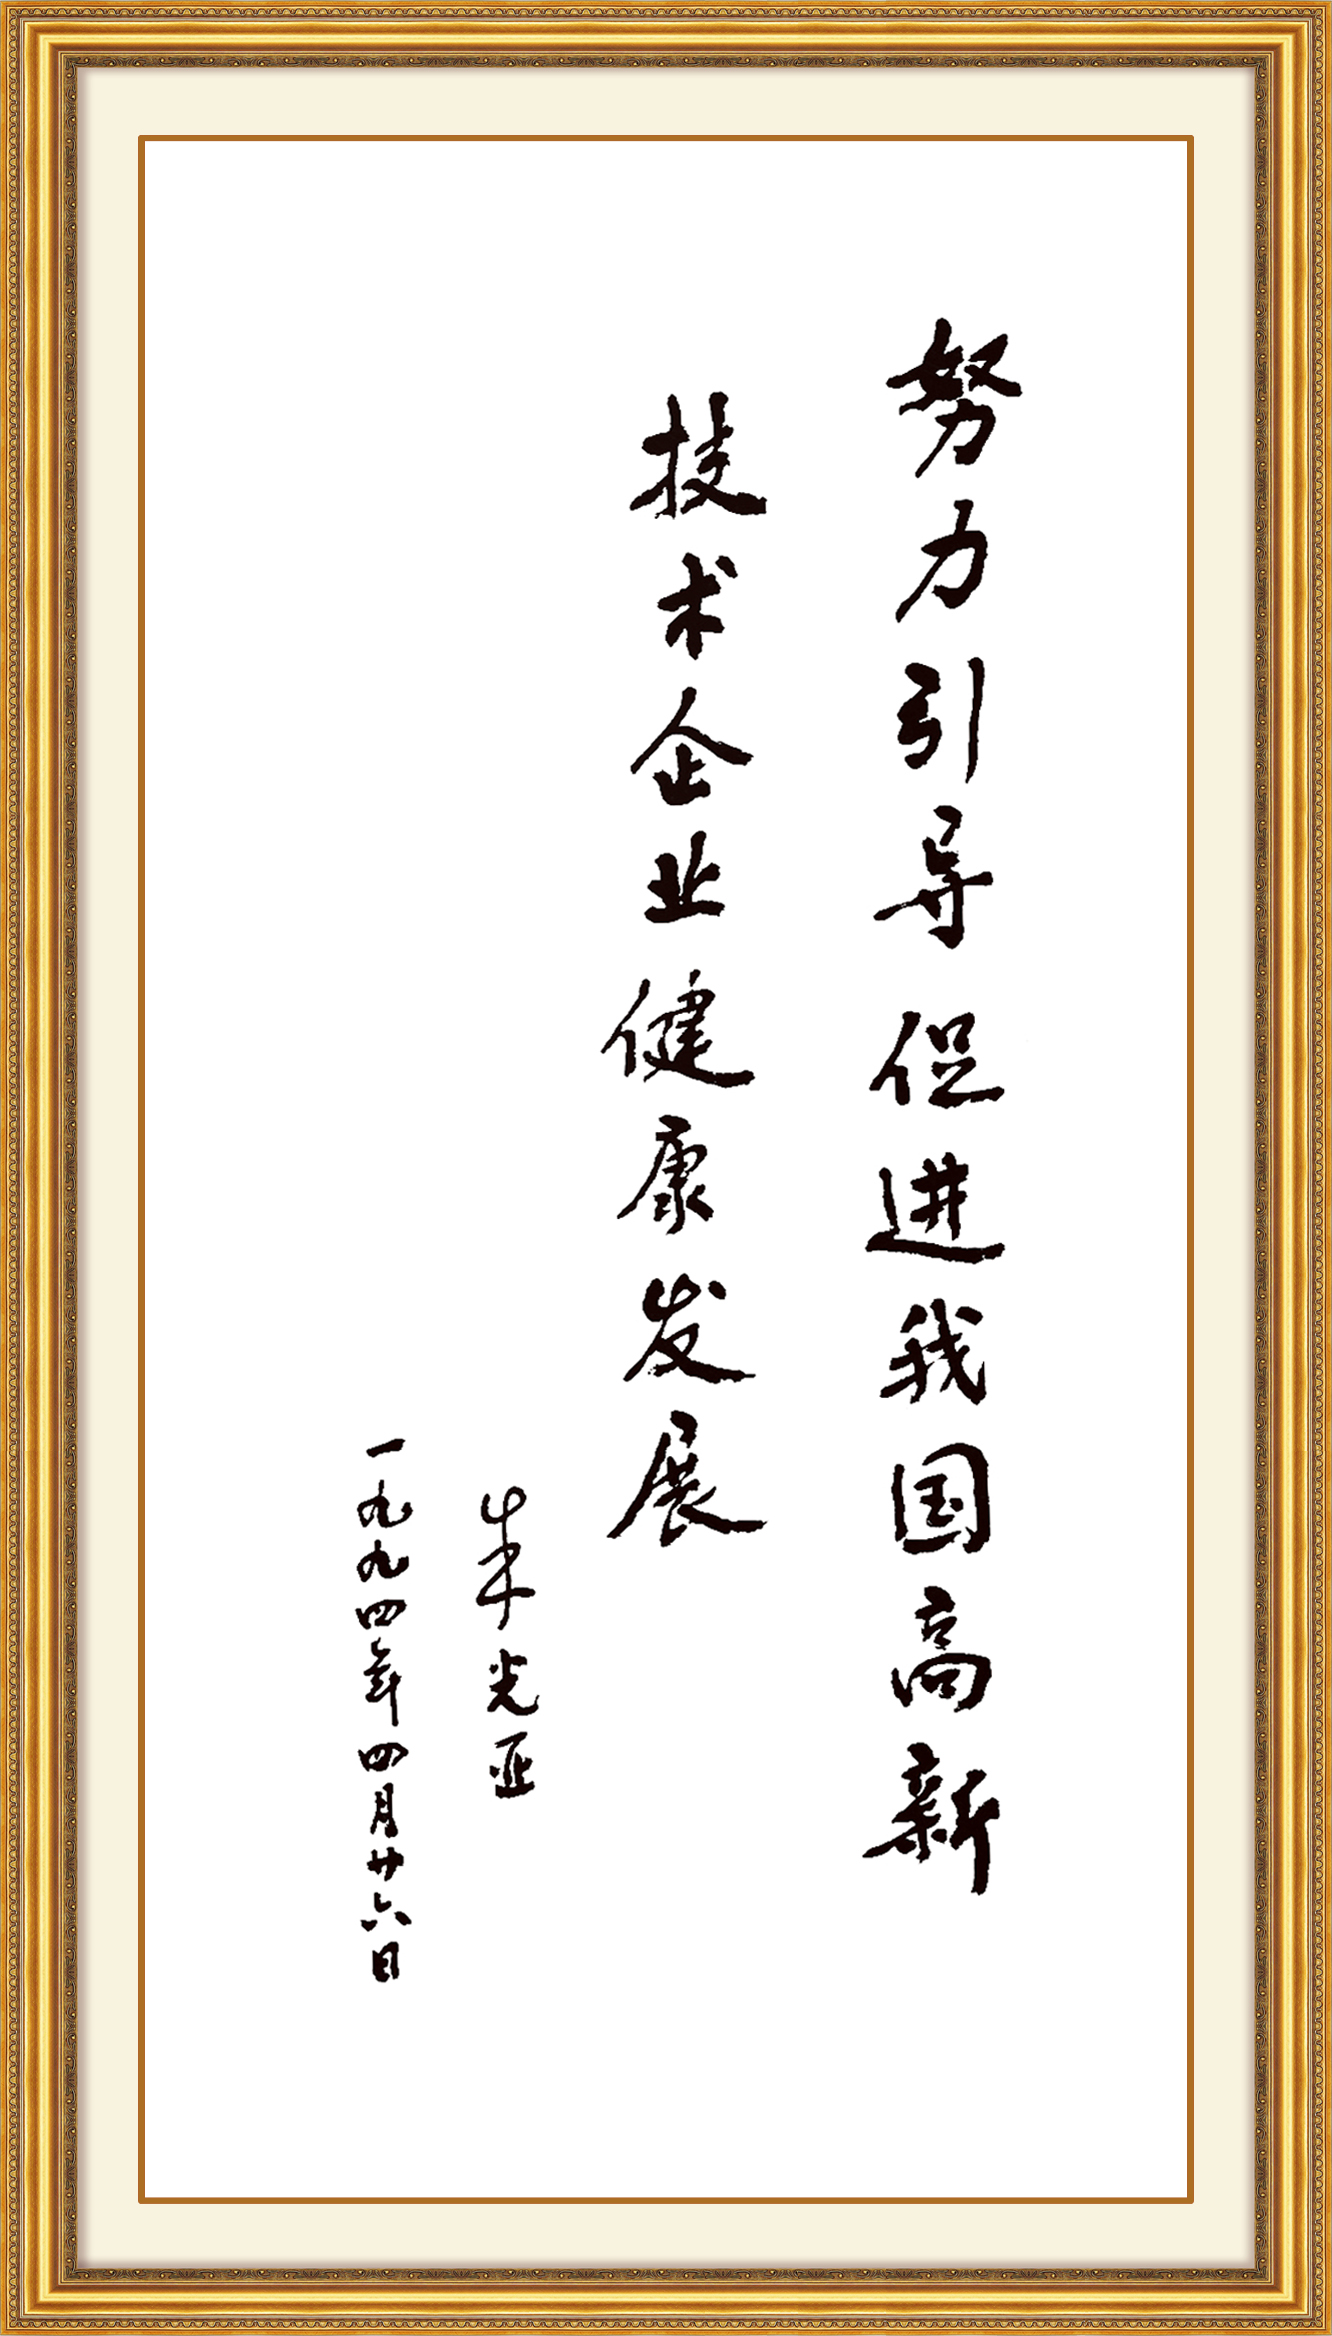 努力引导促进我国高新
技术企业健康发展
朱光亚
一九九四年四月廿六日